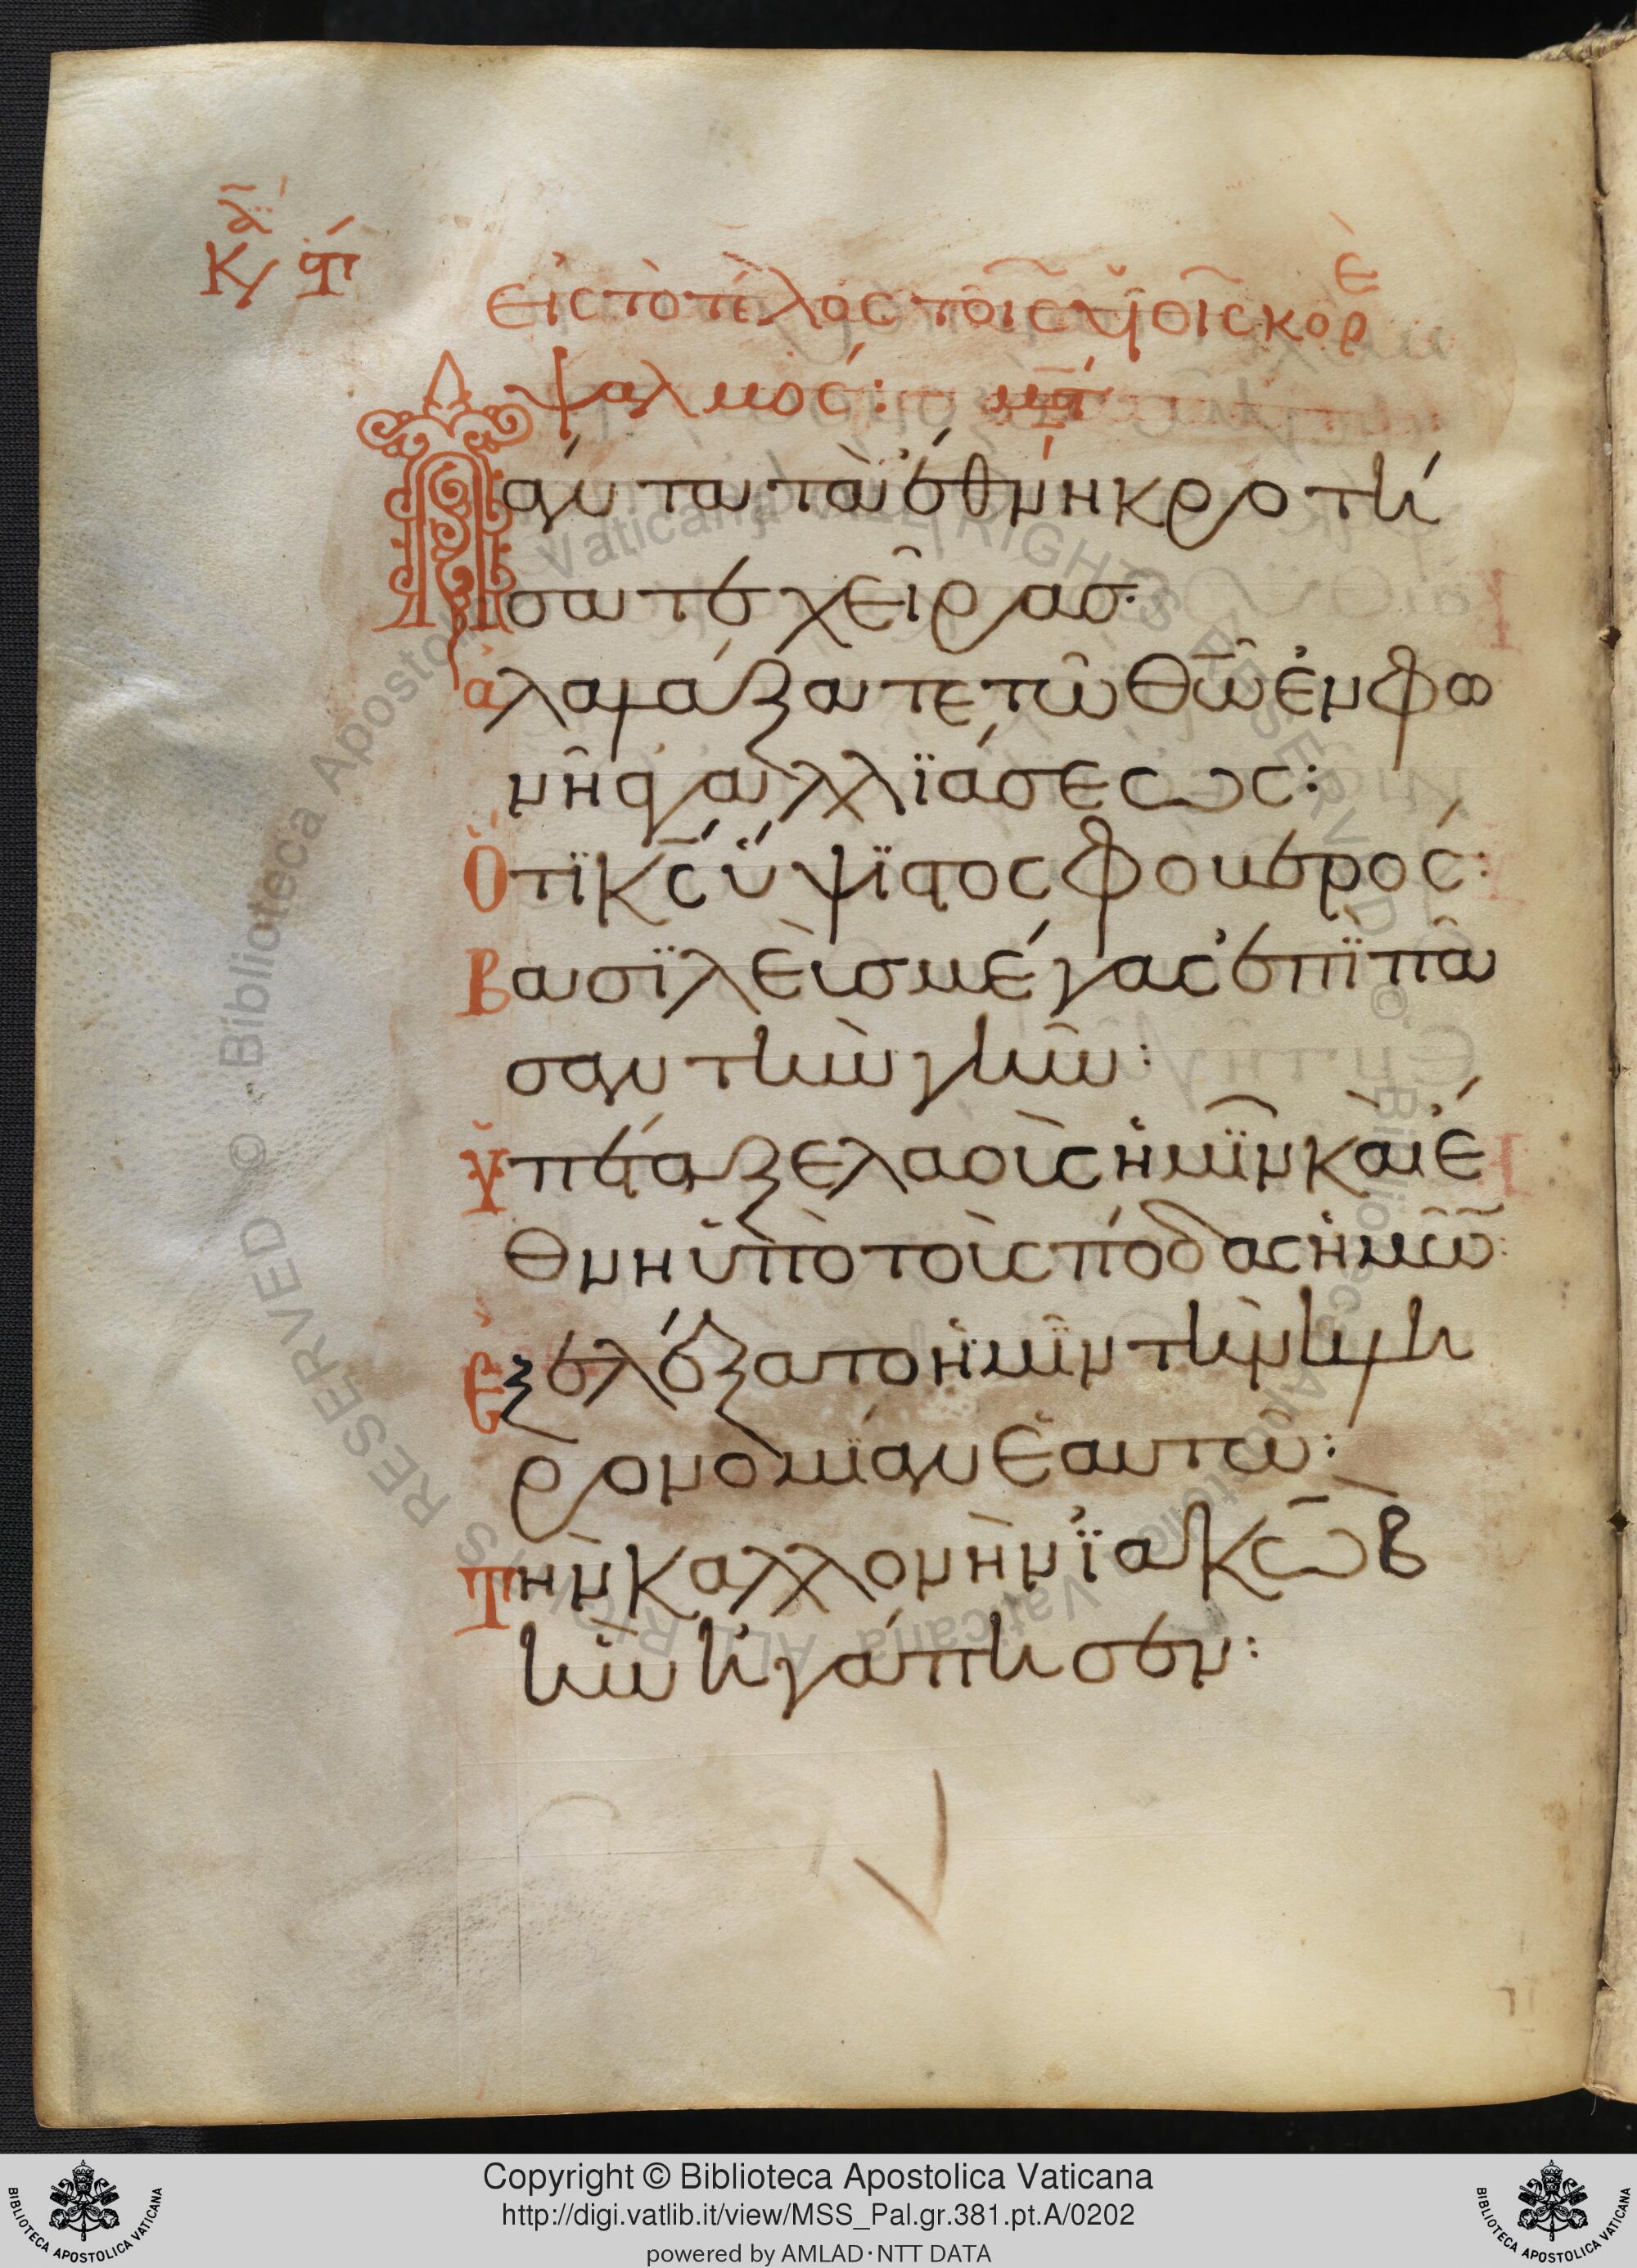 Κ/ ϙ
εἰς τὸ τέλος τοῖς υἱοῖς κορὲ
ψαλμός: μϛ
Πάντα τὰ ἔθνη κροτή
σατε χεῖρας:
ἀλαλάξατε τῶ θῶ ἐν φω
νῆ ἀγαλλϊάσεως:
Ὅτϊ κς ὕψϊστος φοβερός:
Βασϊλεὺς μέγας ἐπῒ πᾶ
σαν τὴν γῆν:
Ὑπέταξε λαοὺς ἡμῖν καὶ ἔ
θνη ὑπὸ τοὺς πόδας ἡμῶ:
Ἐξελέξατο ἡμῖν τὴν κλη
ρονομίαν ἑαυτῶ:
Τὴν καλλονὴν ἰακὼβ
ἣν ἠγάπησεν:
Copyright © Biblioteca Apostolica Vaticana
http://digi.vatlib.it/view/MSS_Pal.gr.381.pt.A/0202
powered by AMLAD·NTT DATA
BIBLIOTECA APOSTOLICA VATICANA
BIBLIOTECA APOSTOLICA VATICANA
© Biblioteca Apostolica Vaticana ALL RIGHTS RESERVED